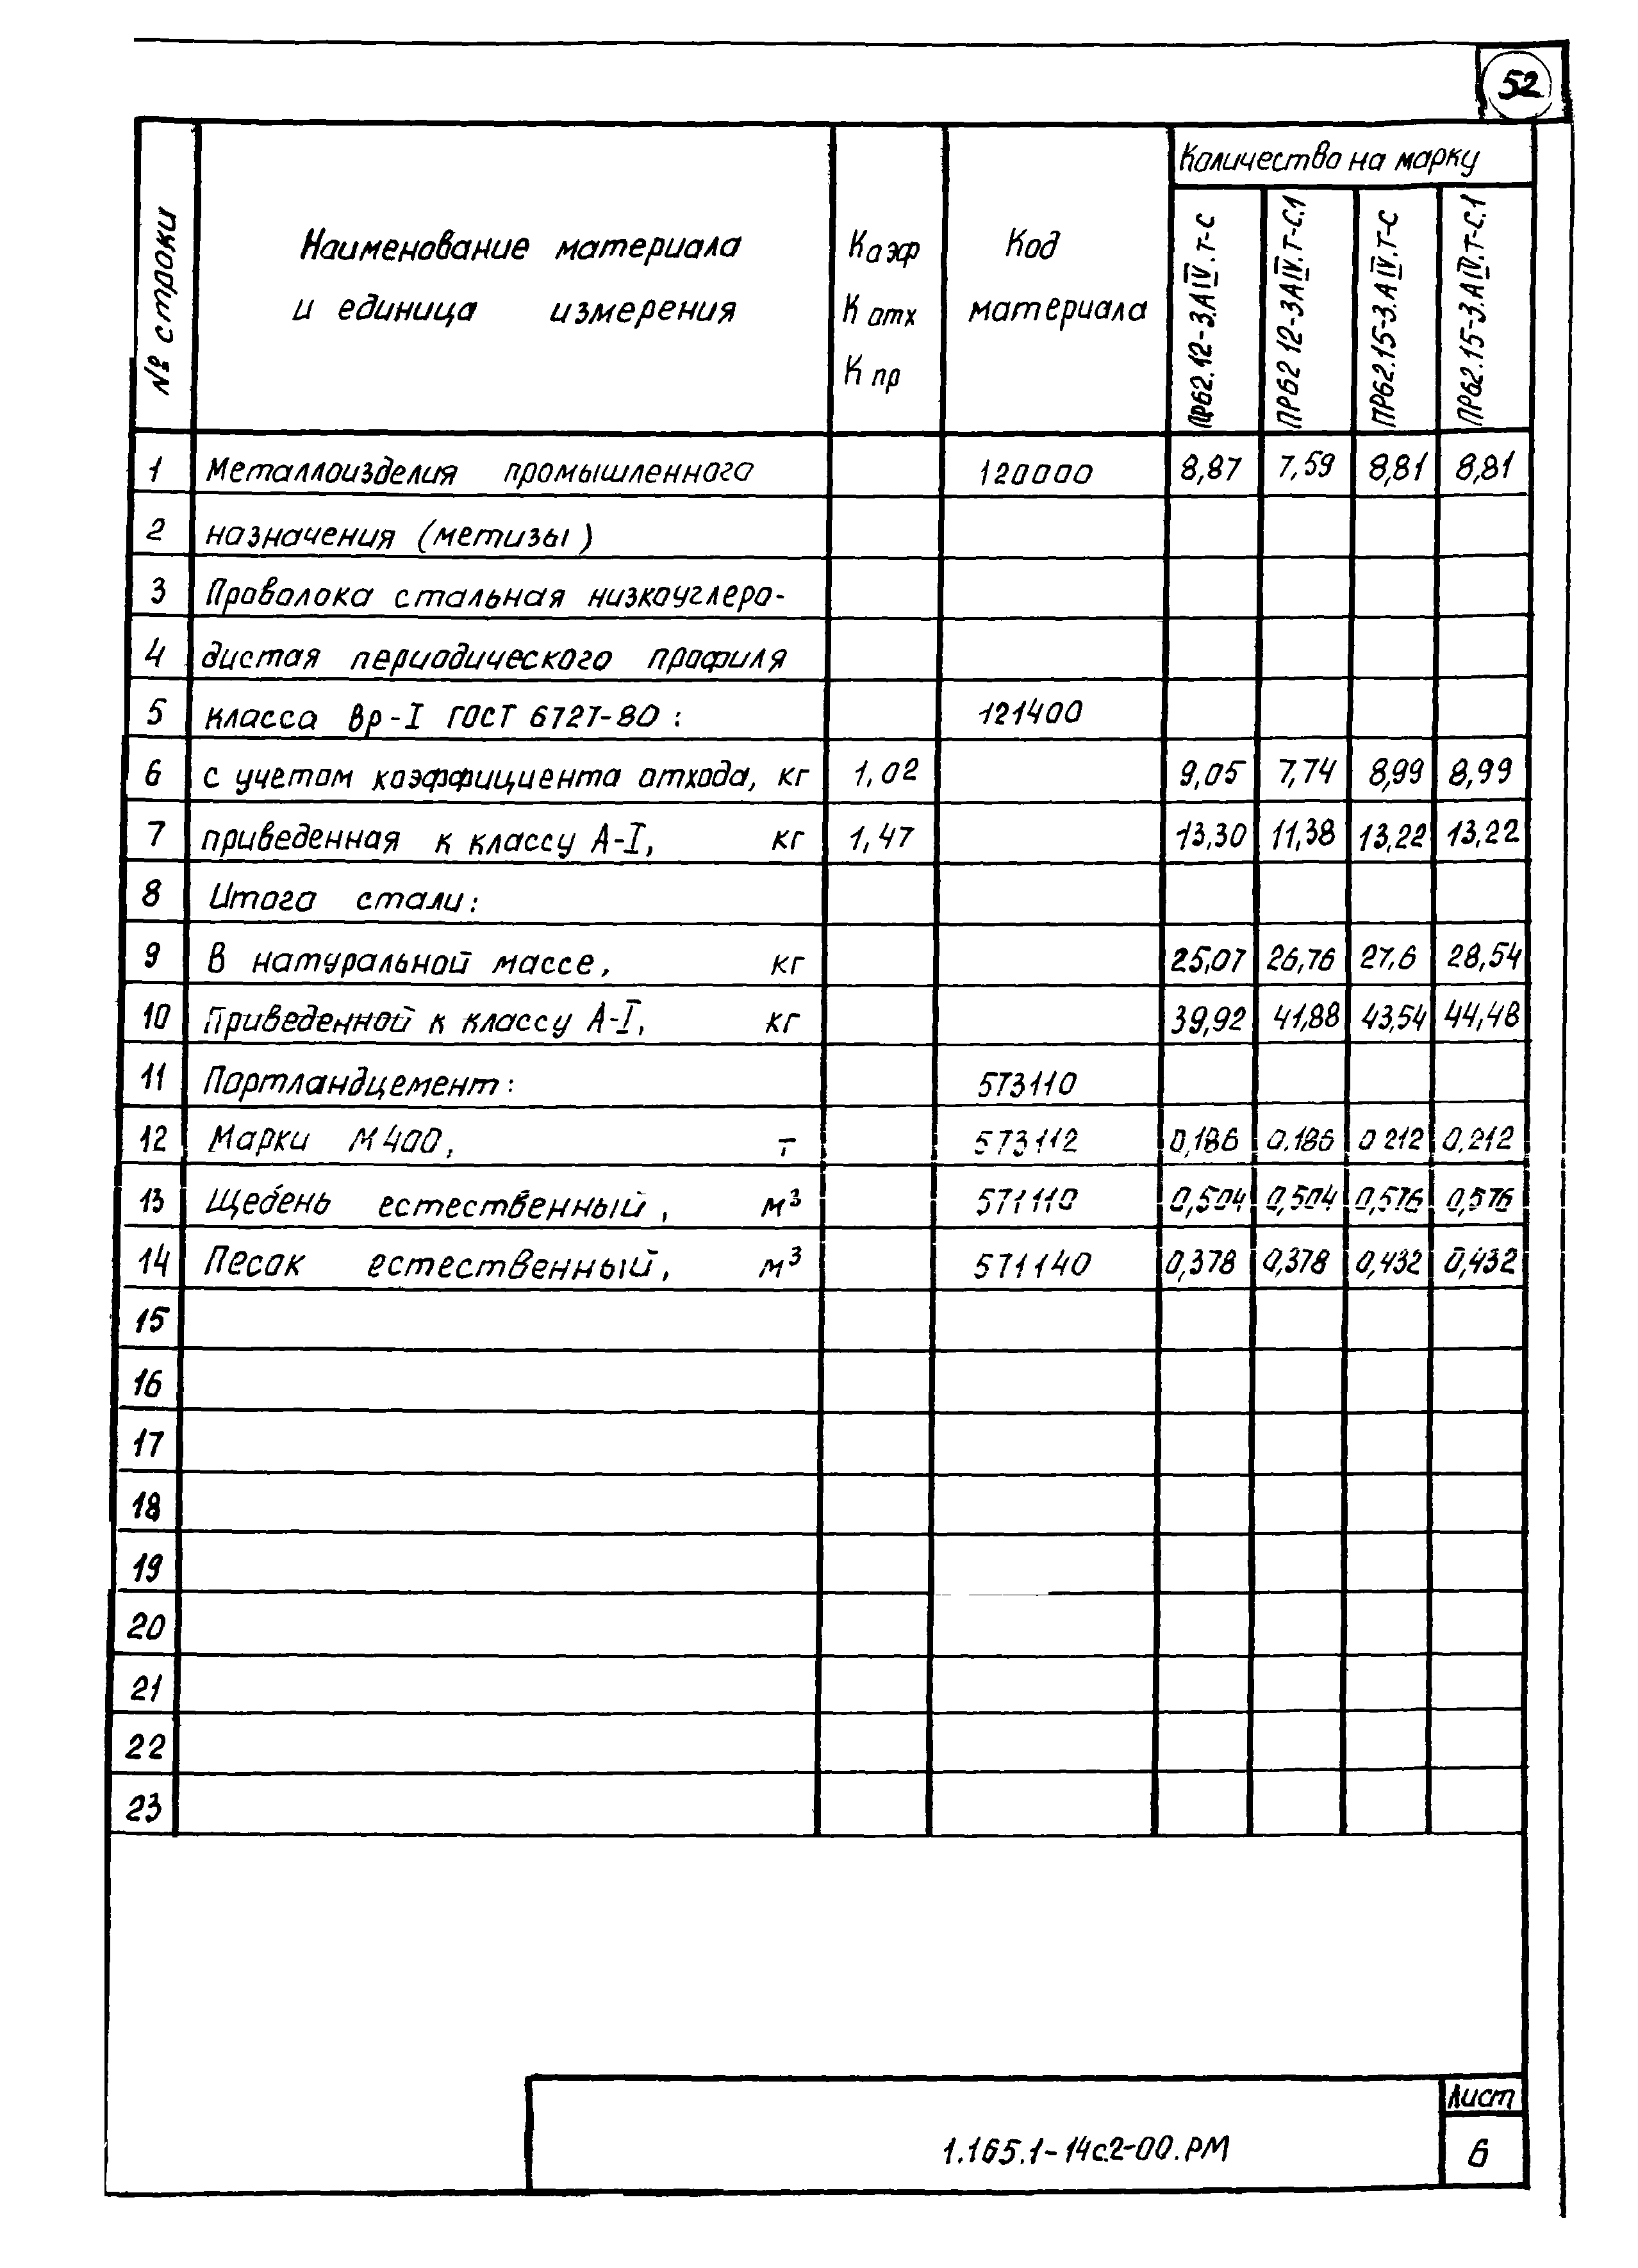 52
Количество на марку
№ строки
Наименование материала
и единица измерения
Кээф
К отх
К пр
Код
материала
ПР62.12-3.АIV.т-с
ПР62 12-3АIV.т-с.1
ПР62.15-3.АIV.т-с
ПР62.15-3.АIV.т-с.1
1 Металлоизделия промышленного 120000 8,87 7,59 8,81 8,81
2 назначения (метизы)
3 Проволока стальная низкоуглеро-
4 дистая периодического профиля
5 класса Вр-I ГОСТ 6727-80: 121400
6 с учетом коэффициента отхода, кг 1,02 9,05 7,74 8,99 8,99
7 приведенная к классу А-I, кг 1,47 13,30 11,38 13,22 13,22
8 Итого стали:
9 В натуральной массе, кг 25,07 26,76 27,6 28,54
10 Приведенной к классу А-I, кг 39,92 41,88 43,54 44,48
11 Портландцемент: 573110
12 Марки М400, т 573112 0,186 0.186 0 212 0,212
13 Щебень естественный, м³ 571110 0,504 0,504 0,576 0,576
14 Песок естественный, м³ 571140 0,378 0,378 0,432 0,432
15
16
17
18
19
20
21
22
23
1.165.1-14с.2-00.РМ
Лист
6